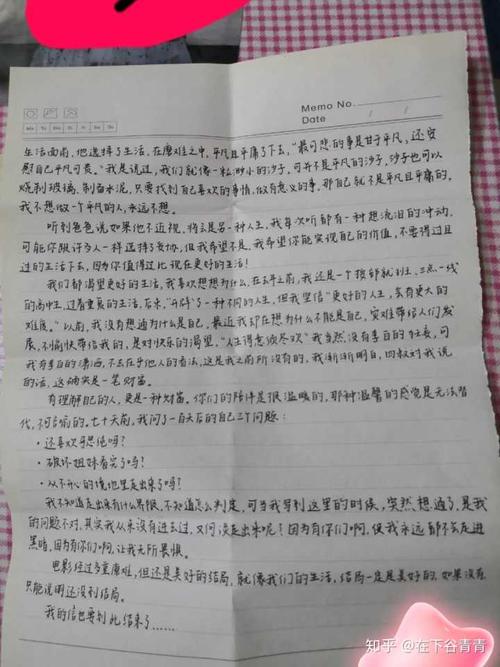 Memo No.
Mo Tu We Th Fr Sa Su
Date / /
生活面前,他选择了生活,在磨难之中,平凡且平庸了下去,“最可悲的事是甘于平凡,还安
慰自己平凡可贵。”我是说过,我们就像一粒渺小的沙子,可并不是平凡的沙子,沙子也可以
烧制玻璃,制备水泥,只要找到自己喜欢的事情,做有意义的事,那自己就不是平凡且平庸的。
我不想做一个平凡的人,永远不想。
听到爸爸说如果他不近视,将会是另一种人生,我每次听都有一种想流泪的冲动,
可能你跟许多人一样选择了妥协,但我希望不是,我希望你能实现自己的价值,不要得过且
过的生活下去,因为你值得过比现在更好的生活!
我们都渴望更好的生活,我喜欢想想为什么,在去年之前,我还是一个按部就班,三点一线
的高中生,过着重复的生活,后来,“开辟”了一种不同的人生,但我坚信“更好的人生,会有更大的
难度。”以前,我没有想过为什么是自己,最近我却在想为什么不能是自己,灾难带给人们发
展,不愉快带给我的,是对快乐的渴望,“人生得意须尽欢”我当然没有李白的狂妄,可
我有李白的潇洒,不去在乎他人的看法,这是我之前所没有的,我渐渐明白,四叔对我说
的话,这确实是一笔财富。
有理解自己的人,更是一种财富。你们的陪伴是很温暖的,那种温馨的感觉是无法替
代,不可言喻的,七十天前,我问了一百天后的自己三个问题:
·还喜欢哥思绝吗?
·破坏姐妹看完了吗?
·从不开心的境地里走出来了吗?
我不知道走出来有什么界限,不知道怎么判定,可当我写到这里的时候,突然想通了,是我
的问题不对,其实我从来没有进去过,又何谈走出来呢?因为有你们啊,使我永远都不会走进
黑暗,因为有你们啊,让我无所畏惧。
电影经过多重磨难,但还是美好的结局,就像我们的生活,结局一定是美好的,如果没有,
只能说明还没到结局。
我的信也要到此结束了……
知乎 @在下谷青青